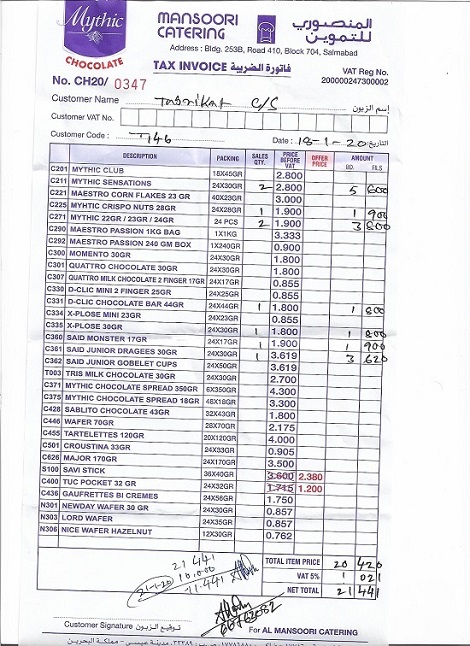 Mythic
CHOCOLATE
MANSOORI
CATERING
المنصوري
للتموين
Address : Bldg. 253B, Road 410, Block 704, Salmabad
No. CH20/ 0347
TAX INVOICE فاتورة الضريبة
VAT Reg No.
200000247300002
Customer Name C/S إسم الزبون
Customer VAT No.
Customer Code : T146 Date : 18-1-20 التاريخ
DESCRIPTION PACKING SALES QTY. PRICE BEFORE VAT OFFER PRICE AMOUNT BD. FILS
C201 MYTHIC CLUB 18X45GR 2.800
C211 MYTHIC SENSATIONS 24X30GR 2 2.800 5 600
C221 MAESTRO CORN FLAKES 23 GR 40X23GR 3.000
C225 MYTHIC CRISPO NUTS 28GR 24X28GR 1 1.900 1 900
C271 MYTHIC 22GR / 23GR / 24GR 24 PCS 2 1.900 3 800
C290 MAESTRO PASSION 1KG BAG 1X1KG 3.333
C292 MAESTRO PASSION 240 GM BOX 1X240GR 0.900
C300 MOMENTO 30GR 24X30GR 1.800
C301 QUATTRO CHOCOLATE 30GR 24X30GR 1.800
C307 QUATTRO MILK CHOCOLATE 2 FINGER 17GR 24X17GR 0.855
C330 D-CLIC MINI 2 FINGER 25GR 24X25GR 0.855
C331 D-CLIC CHOCOLATE BAR 44GR 24X44GR 1 1.800 1 800
C334 X-PLOSE MINI 23GR 24X23GR 0.855
C335 X-PLOSE 30GR 24X30GR 1 1.800 1 800
C360 SAID MONSTER 17GR 24X17GR 1 1.900 1 900
C361 SAID JUNIOR DRAGEES 30GR 24X30GR 1 3.619 3 620
C362 SAID JUNIOR GOBELET CUPS 24X50GR 3.619
T003 TRIS MILK CHOCOLATE 30GR 24X30GR 2.700
C371 MYTHIC CHOCOLATE SPREAD 350GR 6X350GR 4.300
C375 MYTHIC CHOCOLATE SPREAD 18GR 48X18GR 3.300
C428 SABLITO CHOCOLATE 43GR 32X43GR 1.800
C446 WAFER 70GR 28X70GR 2.175
C455 TARTELETTES 120GR 20X120GR 4.000
C501 CROUSTINA 33GR 24X33GR 0.905
C626 MAJOR 170GR 24X170GR 3.500
S100 SAVI STICK 36X40GR 3.600 2.380
C400 TUC POCKET 32 GR 24X32GR 1.715 1.200
C436 GAUFRETTES BI CREMES 24X56GR 1.750
N301 NEWDAY WAFER 30 GR 24X30GR 0.857
N303 LORD WAFER 24X35GR 0.857
N306 NICE WAFER HAZELNUT 12X30GR 0.762
TOTAL ITEM PRICE 20 420
VAT 5% 1 021
NET TOTAL 21 441
21 441
21-1-20 10.000
11.441
Customer Signature توقيع الزبون
For AL MANSOORI CATERING